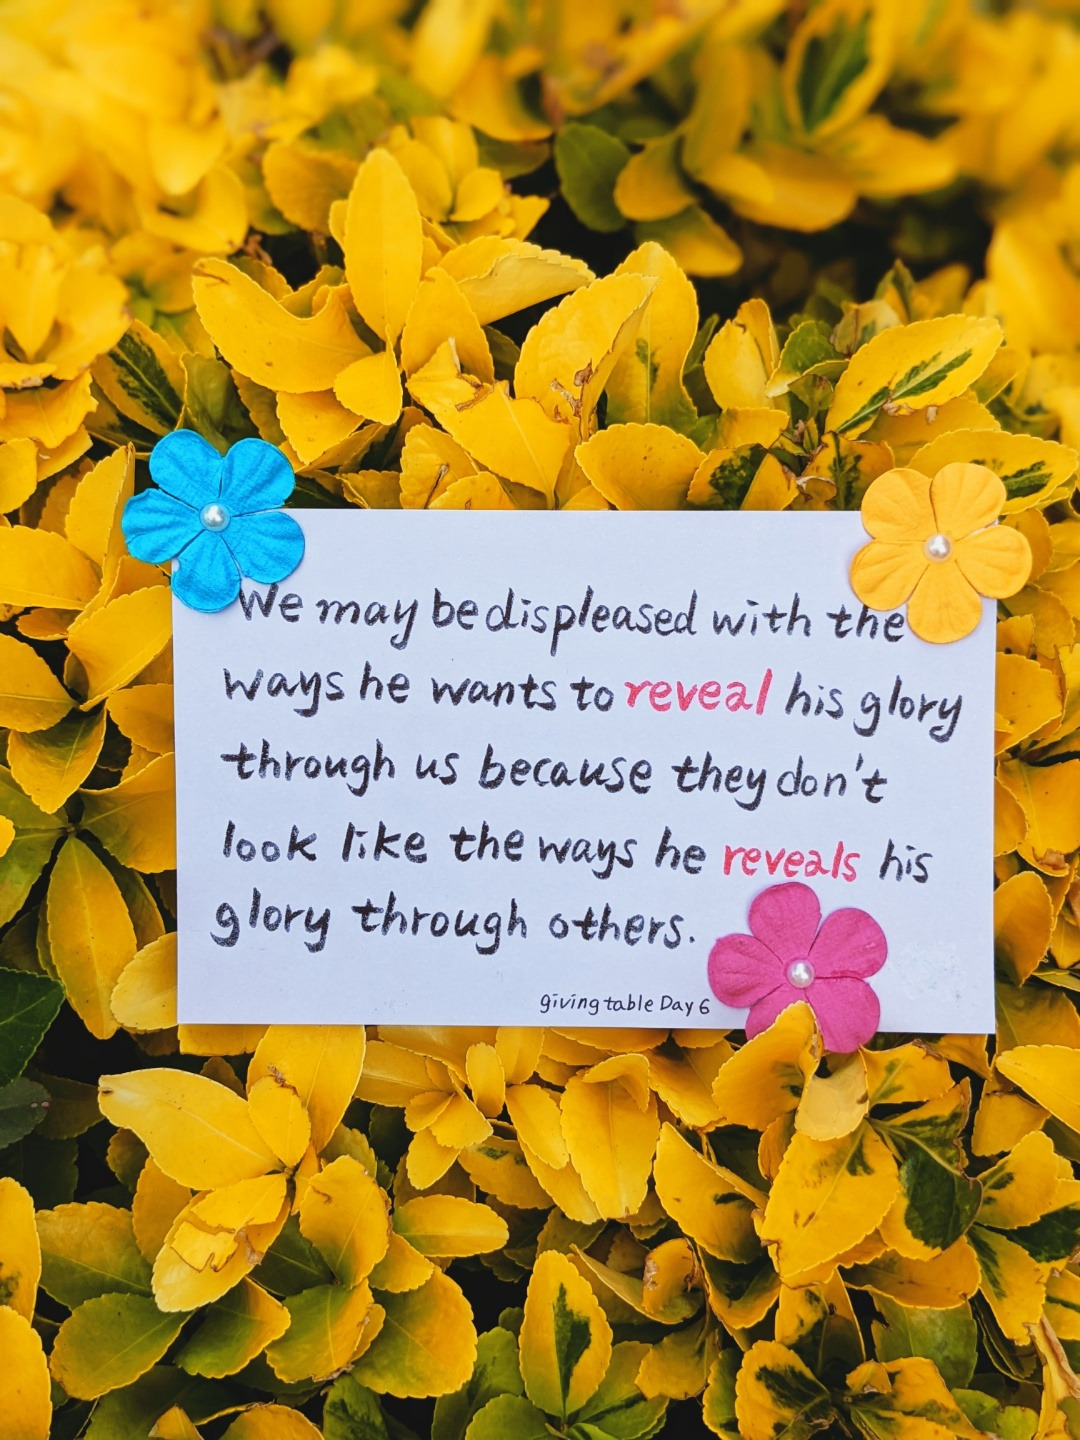 We may be displeased with the
ways he wants to reveal his glory
through us because they don't
look like the ways he reveals his
glory through others.
giving table Day 6